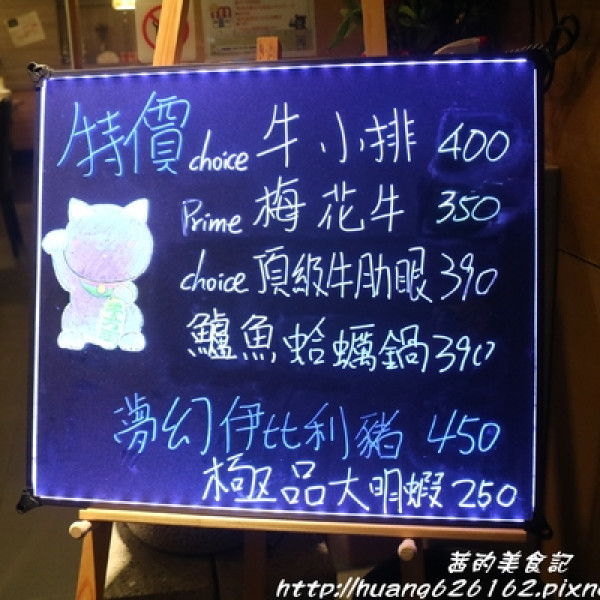 特價 choice 牛小排 400
Prime 梅花牛 350
choice 頂級牛肋眼 390
鱸魚蛤蠣鍋 390
夢幻伊比利豬 450
極品大明蝦 250
茜的美食記
http://huang626162.pixne